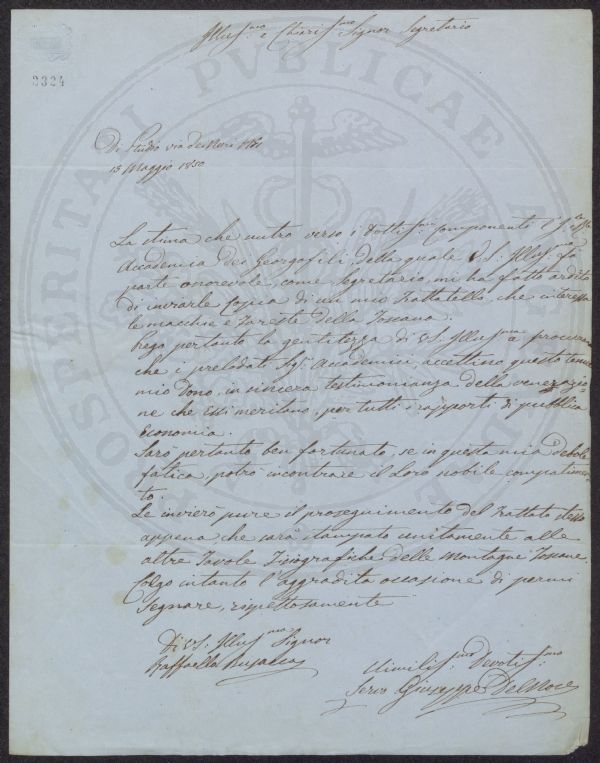 Illus.mo e Chiaris.mo Signor Segretario
2324
Di Studio via de
13 Maggio 1850
La stima che nutro verso i Dottis.mi componenti l'
Accademia dei Georgofili, della quale V.S. Illus.ma fa
parte onorevole, come Segretario, mi ha fatto ardito
di inviarle Copia di un mio Trattatello, che interessa
le macchie e Foreste della Toscana.
Prego pertanto la gentilezza di V.S. Illus.ma a procurare
che i prelodati Sigi. Accademici, accettino questo tenue
mio Dono, in sincera testimonianza della venerazio
ne che Essi meritano, per tutti i rapporti di pubblica
Economia.
Sarò pertanto ben fortunato, se in questa mia debole
fatica, potrò incontrare il Loro nobile compatimen
to.
Le invierò pure il proseguimento del Trattato stesso
appena che sarà stampato unitamente alle
altre Tavole Fisiografiche delle Montagne Toscane.
Colgo intanto l'aggradita occasione di potermi
segnare, rispettosamente
Di V.S. Illus.ma Signor
Raffaello Busacca
Umilis.mo Devotis.mo
Servo Giuseppe Del Noce
PROSPERITATI PVBLICAE AVGENDAE